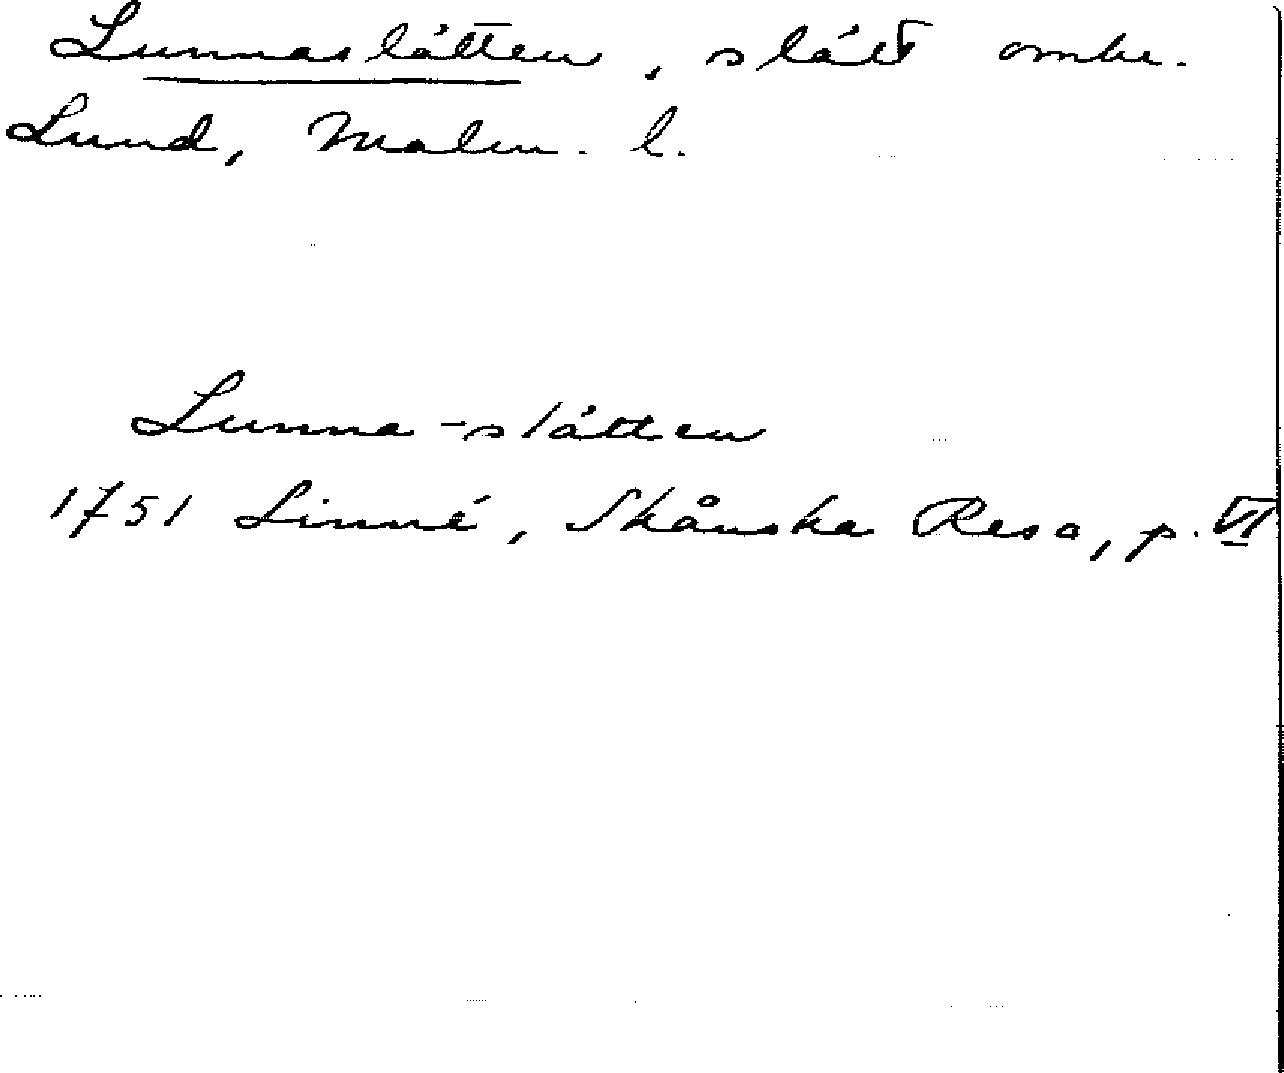 Lunnaslätten, slätt omkr.
Lund, Malm. l.
Lunna-slätten
1751 Linné, Skånska Resa, p. VI